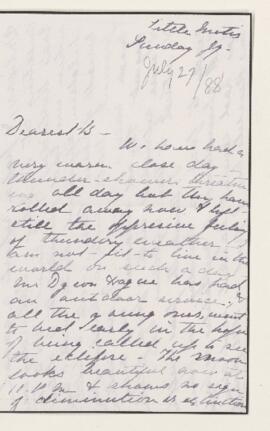 Little Metis
Sunday
July 27/88
Dearest B -
We have had a
very warm close day -
thunder-showers threaten
ing all day but they have
rolled away now & left
still the oppressive feeling
of thundery weather. I
am not fit to live in the
world on such a day
Mr Dyson Hague has had
an outdoor service, &
all the young ones, went
to bed early in the hope
of being called up to see
the eclipse. The moon
looks beautiful now at
& shows no sign
of diminution or extinction